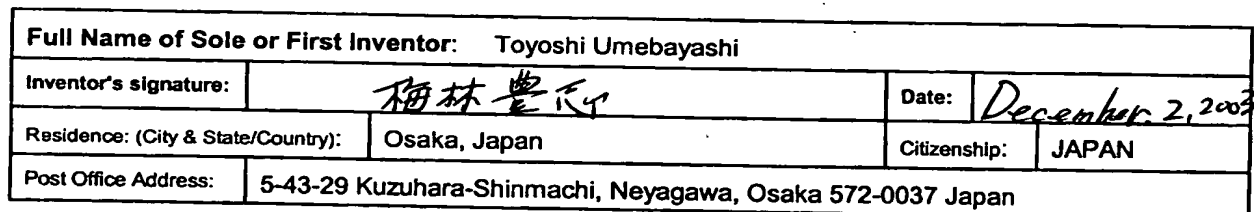 Full Name of Sole or First Inventor: Toyoshi Umebayashi
Inventor's signature: 梅林豊 Date: December. 2, 2003
Residence: (City & State/Country): Osaka, Japan Citizenship: JAPAN
Post Office Address: 5-43-29 Kuzuhara-Shinmachi, Neyagawa, Osaka 572-0037 Japan